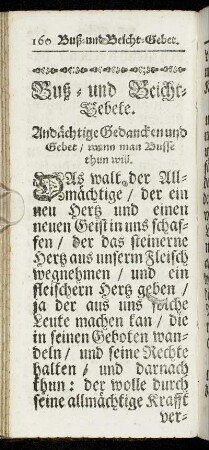 160 Buß- und Beicht-Gebet.
Buß- und Beicht-
Gebete.
Andächtige Gedancken und
Gebet / wann man Busse
thun will.
DAs walt der All-
mächtige / der ein
neu Hertz und einen
neuen Geist in uns schaf-
fen / der das steinerne
Hertz aus unserm Fleisch
wegnehmen / und ein
fleischern Hertz geben /
ja der aus uns solche
Leute machen kan / die
in seinen Geboten wan-
deln / und seine Rechte
halten / und darnach
thun: der wolle durch
seine allmächtige Krafft
ver-